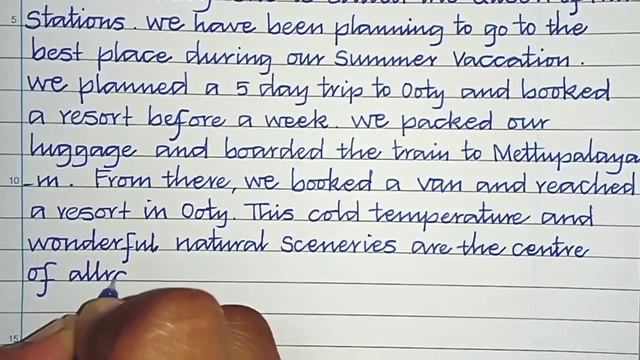 5
Stations. we have been planning to go to the
best place during our Summer Vaccation.
we planned a 5 day trip to Ooty and booked
a resort before a week. we packed our
luggage and boarded the train to Mettupalaya
10 -m. From there, we booked a van and reached
a resort in Ooty. This cold temperature and
wonderful natural Sceneries are the centre
of allrc
15